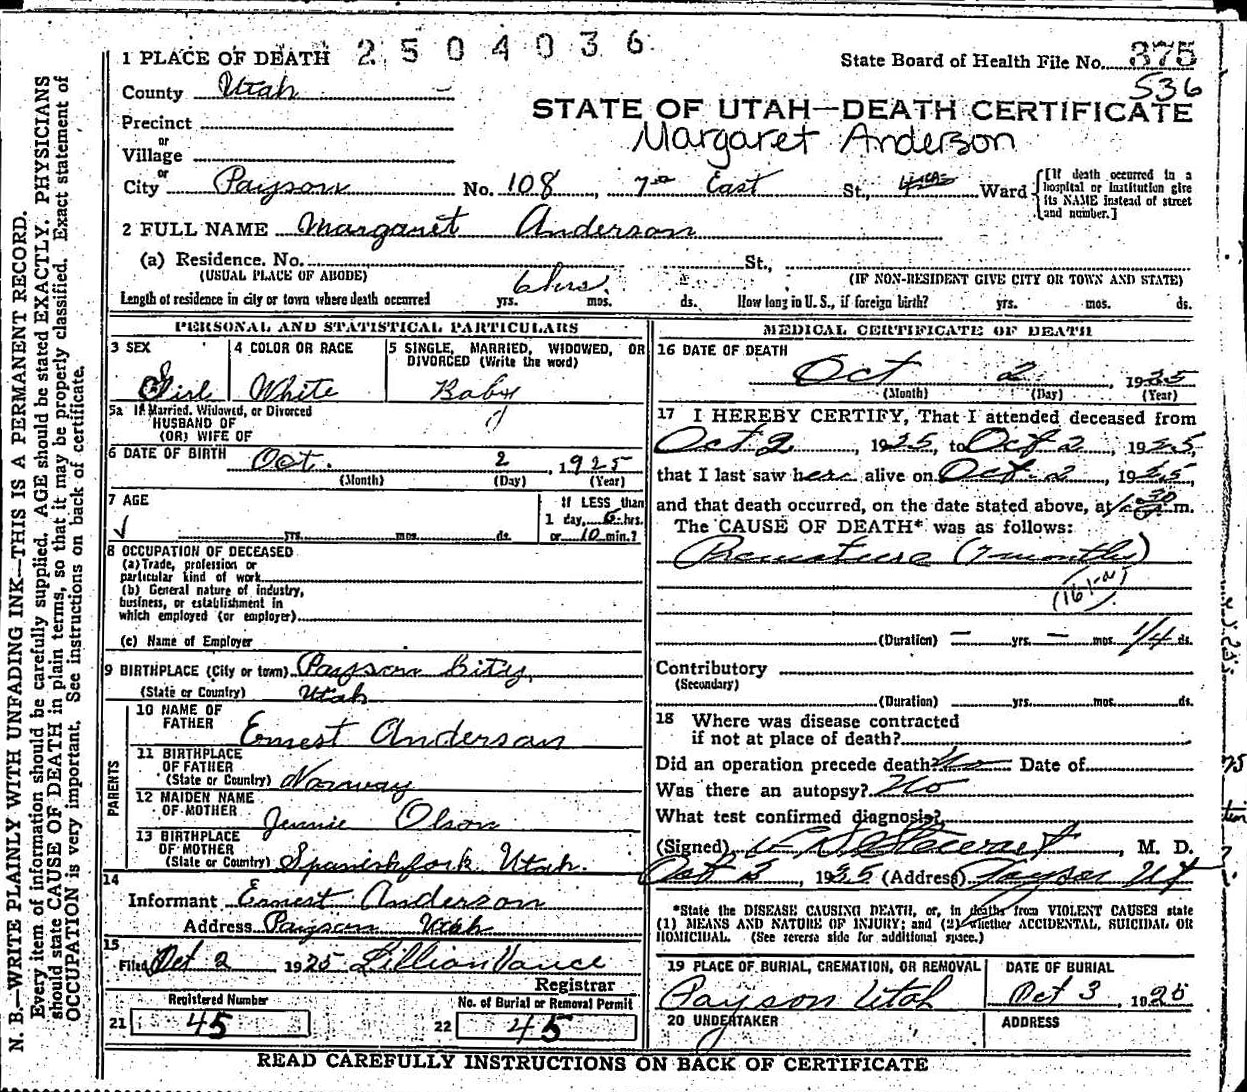 1 PLACE OF DEATH 2504036
State Board of Health File No. 375
536
County Utah
STATE OF UTAH—DEATH CERTIFICATE
Margaret Anderson
Precinct
or
Village
or
City Payson No. 108, 7th East St., Ward
[If death occurred in a hospital or institution give its NAME instead of street and number.]
2 FULL NAME Margaret Anderson
(a) Residence. No. St.,
(USUAL PLACE OF ABODE) (IF NON-RESIDENT GIVE CITY OR TOWN AND STATE)
Length of residence in city or town where death occurred 6 hrs. yrs. mos. ds. How long in U. S., if foreign birth? yrs. mos. ds.
PERSONAL AND STATISTICAL PARTICULARS
3 SEX 4 COLOR OR RACE 5 SINGLE, MARRIED, WIDOWED, OR DIVORCED (Write the word)
Girl White Baby
5a If Married, Widowed, or Divorced
HUSBAND OF
(OR) WIFE OF
6 DATE OF BIRTH Oct. 2, 1925
(Month) (Day) (Year)
7 AGE If LESS than
1 day, 6 hrs.
yrs. mos. ds. or 10 min.?
8 OCCUPATION OF DECEASED
(a) Trade, profession or
particular kind of work
(b) General nature of industry,
business, or establishment in
which employed (or employer)
(c) Name of Employer
9 BIRTHPLACE (City or town) Payson City,
(State or Country) Utah
PARENTS
10 NAME OF
FATHER Ernest Anderson
11 BIRTHPLACE
OF FATHER
(State or Country) Norway
12 MAIDEN NAME
OF MOTHER Jennie Olson
13 BIRTHPLACE
OF MOTHER
(State or Country) Spanishfork Utah.
14
Informant Ernest Anderson
Address Payson Utah
15
Filed Oct 2 1925 Lillian Vance
Registrar
Registered Number No. of Burial or Removal Permit
21 45 22 45
MEDICAL CERTIFICATE OF DEATH
16 DATE OF DEATH
Oct 2, 1925
(Month) (Day) (Year)
17 I HEREBY CERTIFY, That I attended deceased from
Oct 2, 1925, to Oct 2, 1925,
that I last saw her alive on Oct. 2, 1925,
and that death occurred, on the date stated above, at m.
The CAUSE OF DEATH* was as follows:
Premature (7 months)
(161-a)
(Duration) — yrs. — mos. 1/4 ds.
Contributory
(Secondary)
(Duration) yrs. mos. ds.
18 Where was disease contracted
if not at place of death?
Did an operation precede death? No Date of
Was there an autopsy? No
What test confirmed diagnosis?
(Signed) Stewart, M. D.
Oct 3, 1925 (Address) Payson Ut
*State the DISEASE CAUSING DEATH, or, in deaths from VIOLENT CAUSES state
(1) MEANS AND NATURE OF INJURY; and (2) whether ACCIDENTAL, SUICIDAL OR
HOMICIDAL. (See reverse side for additional space.)
19 PLACE OF BURIAL, CREMATION, OR REMOVAL DATE OF BURIAL
Payson Utah Oct 3, 1925
20 UNDERTAKER ADDRESS
READ CAREFULLY INSTRUCTIONS ON BACK OF CERTIFICATE
N. B.—WRITE PLAINLY WITH UNFADING INK—THIS IS A PERMANENT RECORD.
Every item of information should be carefully supplied. AGE should be stated EXACTLY. PHYSICIANS
should state CAUSE OF DEATH in plain terms, so that it may be properly classified. Exact statement of
OCCUPATION is very important. See instructions on back of certificate.